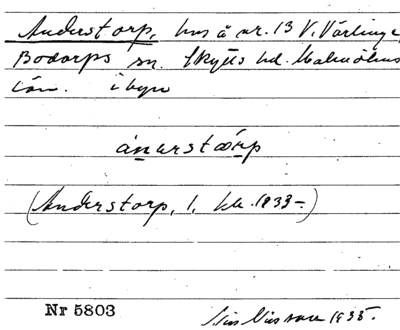 Anderstorp, hus å nr. 13 V. Värlinge,
Bodarps sn. Skytts hd. Malmöhus
län. i byn
ánarstǫrp
(Anderstorp, 1. kk. 1833-)
Nr 5803
Nils Nilsson 1935.